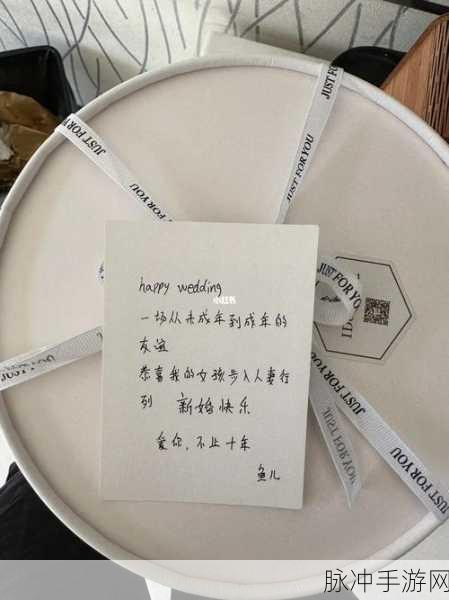 JUST FOR YOU
JUST FOR YOU
happy wedding
小红书
一场从未成年到成年的
友谊
恭喜我的女孩步入人妻行
列 新婚快乐
爱你，不止十年
鱼儿
JUST FOR YOU
JUST FOR YOU
JUST FOR YOU
脉冲手游网